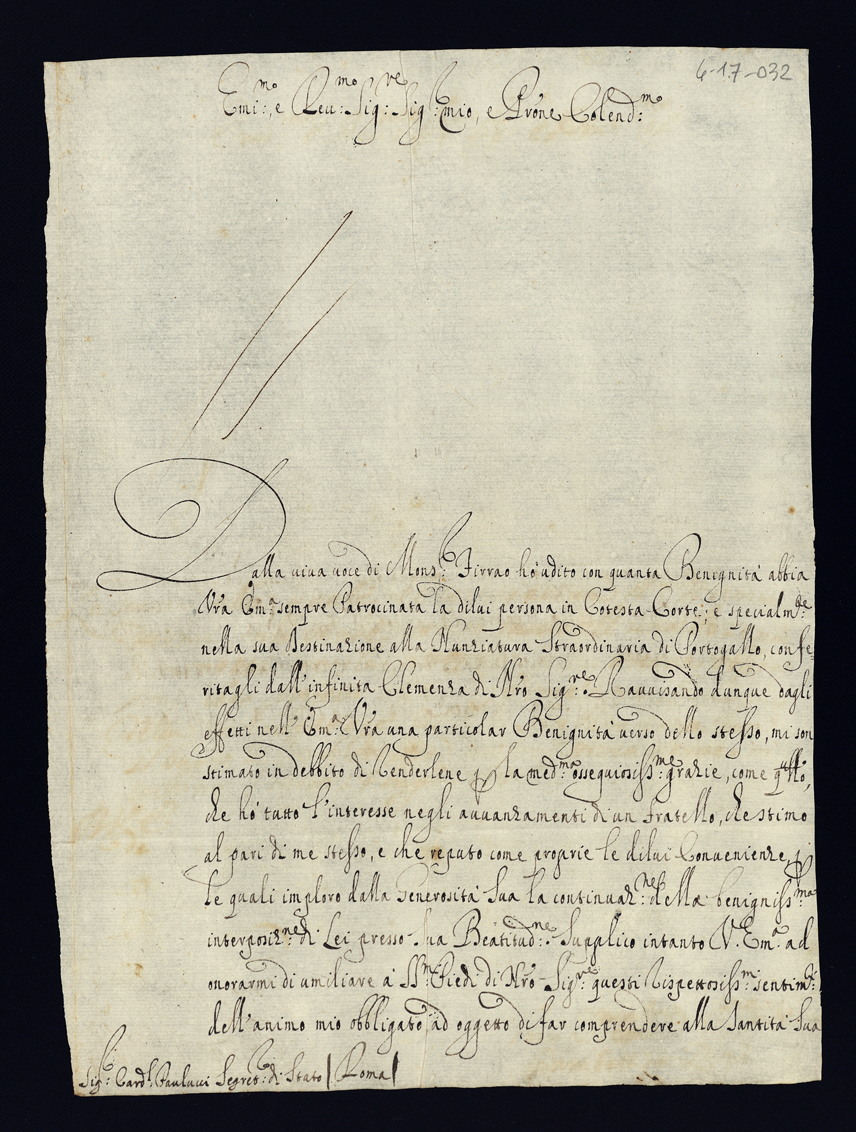 6-17-032
Emi:mo, e Reu:mo Sig:re Sig:r mio, e Prōne Colend:mo
Dalla viva voce di Mons:r Firrao hò udito con quanta Benignità abbia
Vra Em:a sempre Patrocinata la dilui persona in Cotesta Corte; e specialm:te
nella sua Destinazione alla Nunziatura Straordinaria di Portogallo, confe=
ritagli dall'infinita Clemenza di Nrō Sig:re. Ravvisando dunque dagli
effetti nell'Em:a Vrā una particolar Benignità verso dello stesso, mi son
stimato in debbito di renderlene le med:me ossequiosiss:me grazie, come q̄llo,
che hò tutto l'interesse negli avvanzamenti di un fratello, che stimo
al pari di me stesso, e che reputo come proprie le dilui Convenienze, p
le quali imploro dalla Generosità Sua la continuaz:ne della benigniss:ma
interposiz:ne di Lei presso Sua Beatitud:ne. Supplico intanto V. Em:a ad
onorarmi di umiliare à SS:mi Piedi di Nrō Sig:re questi rispettosiss:mi sentim:ti
dell'animo mio obbligato, ad oggetto di far comprendere alla Santità Sua
Sig:r Card:l Paulucci Segret:rio di Stato / Roma /